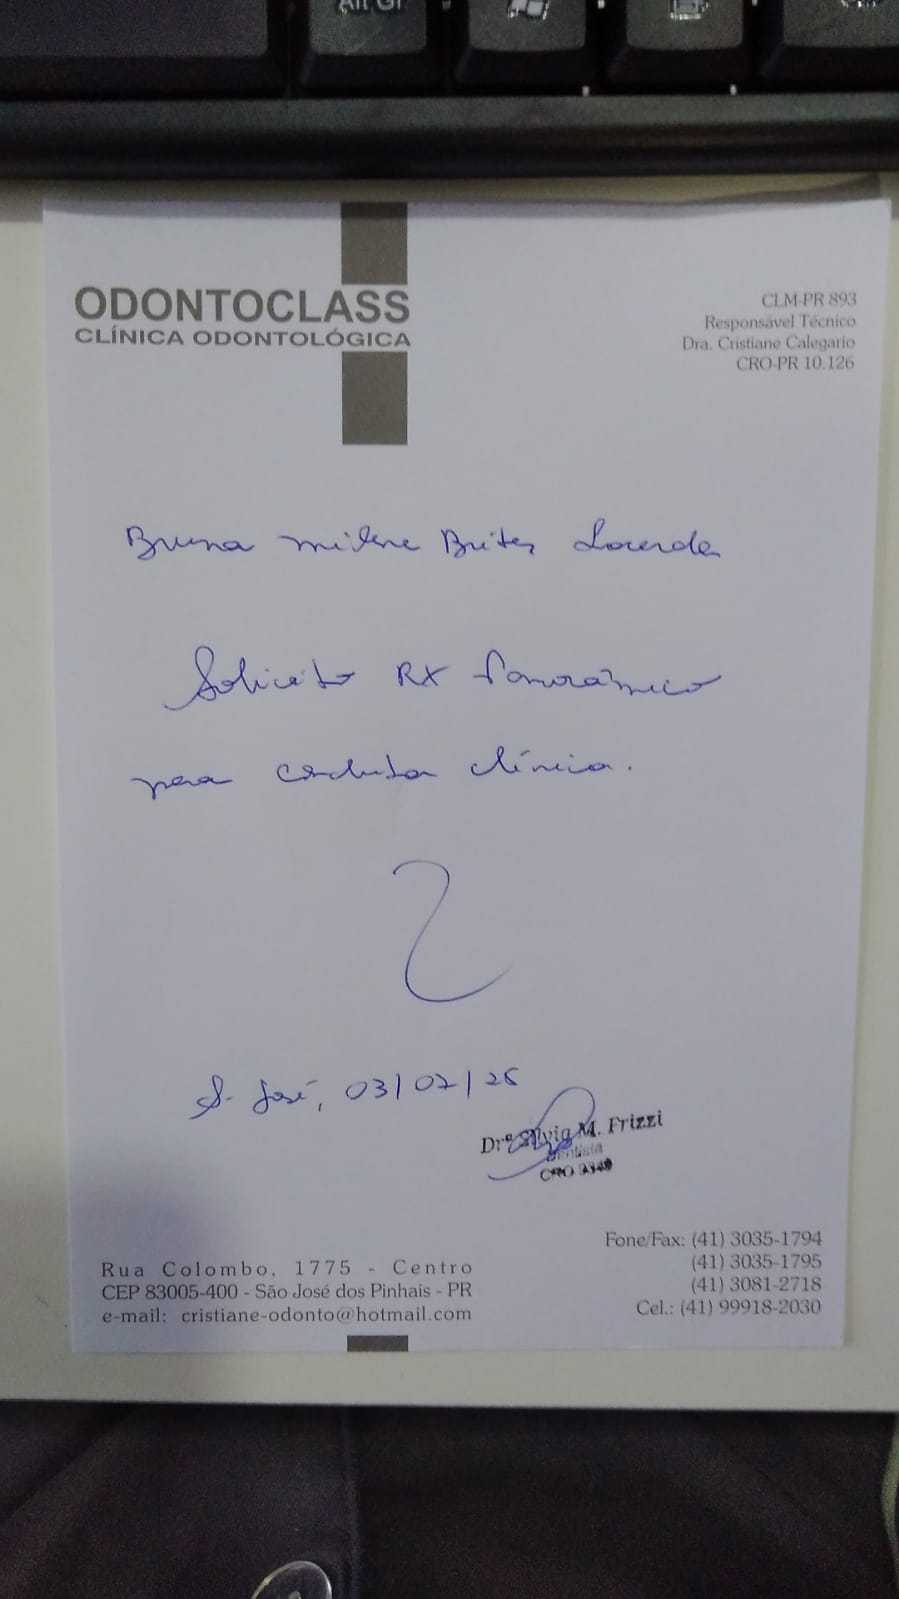 Alt Gr
ODONTOCLASS
CLÍNICA ODONTOLÓGICA
CLM-PR 893
Responsável Técnico
Dra. Cristiane Calegario
CRO-PR 10.126
Bruna Milene Brites Lacerda
Solicito RX Panorâmico
para conduta clínica.
S. José, 03/02/26
Drª Silvia M. Frizzi
Dentista
CRO
Rua Colombo, 1775 - Centro
CEP 83005-400 - São José dos Pinhais - PR
e-mail: cristiane-odonto@hotmail.com
Fone/Fax: (41) 3035-1794
(41) 3035-1795
(41) 3081-2718
Cel.: (41) 99918-2030